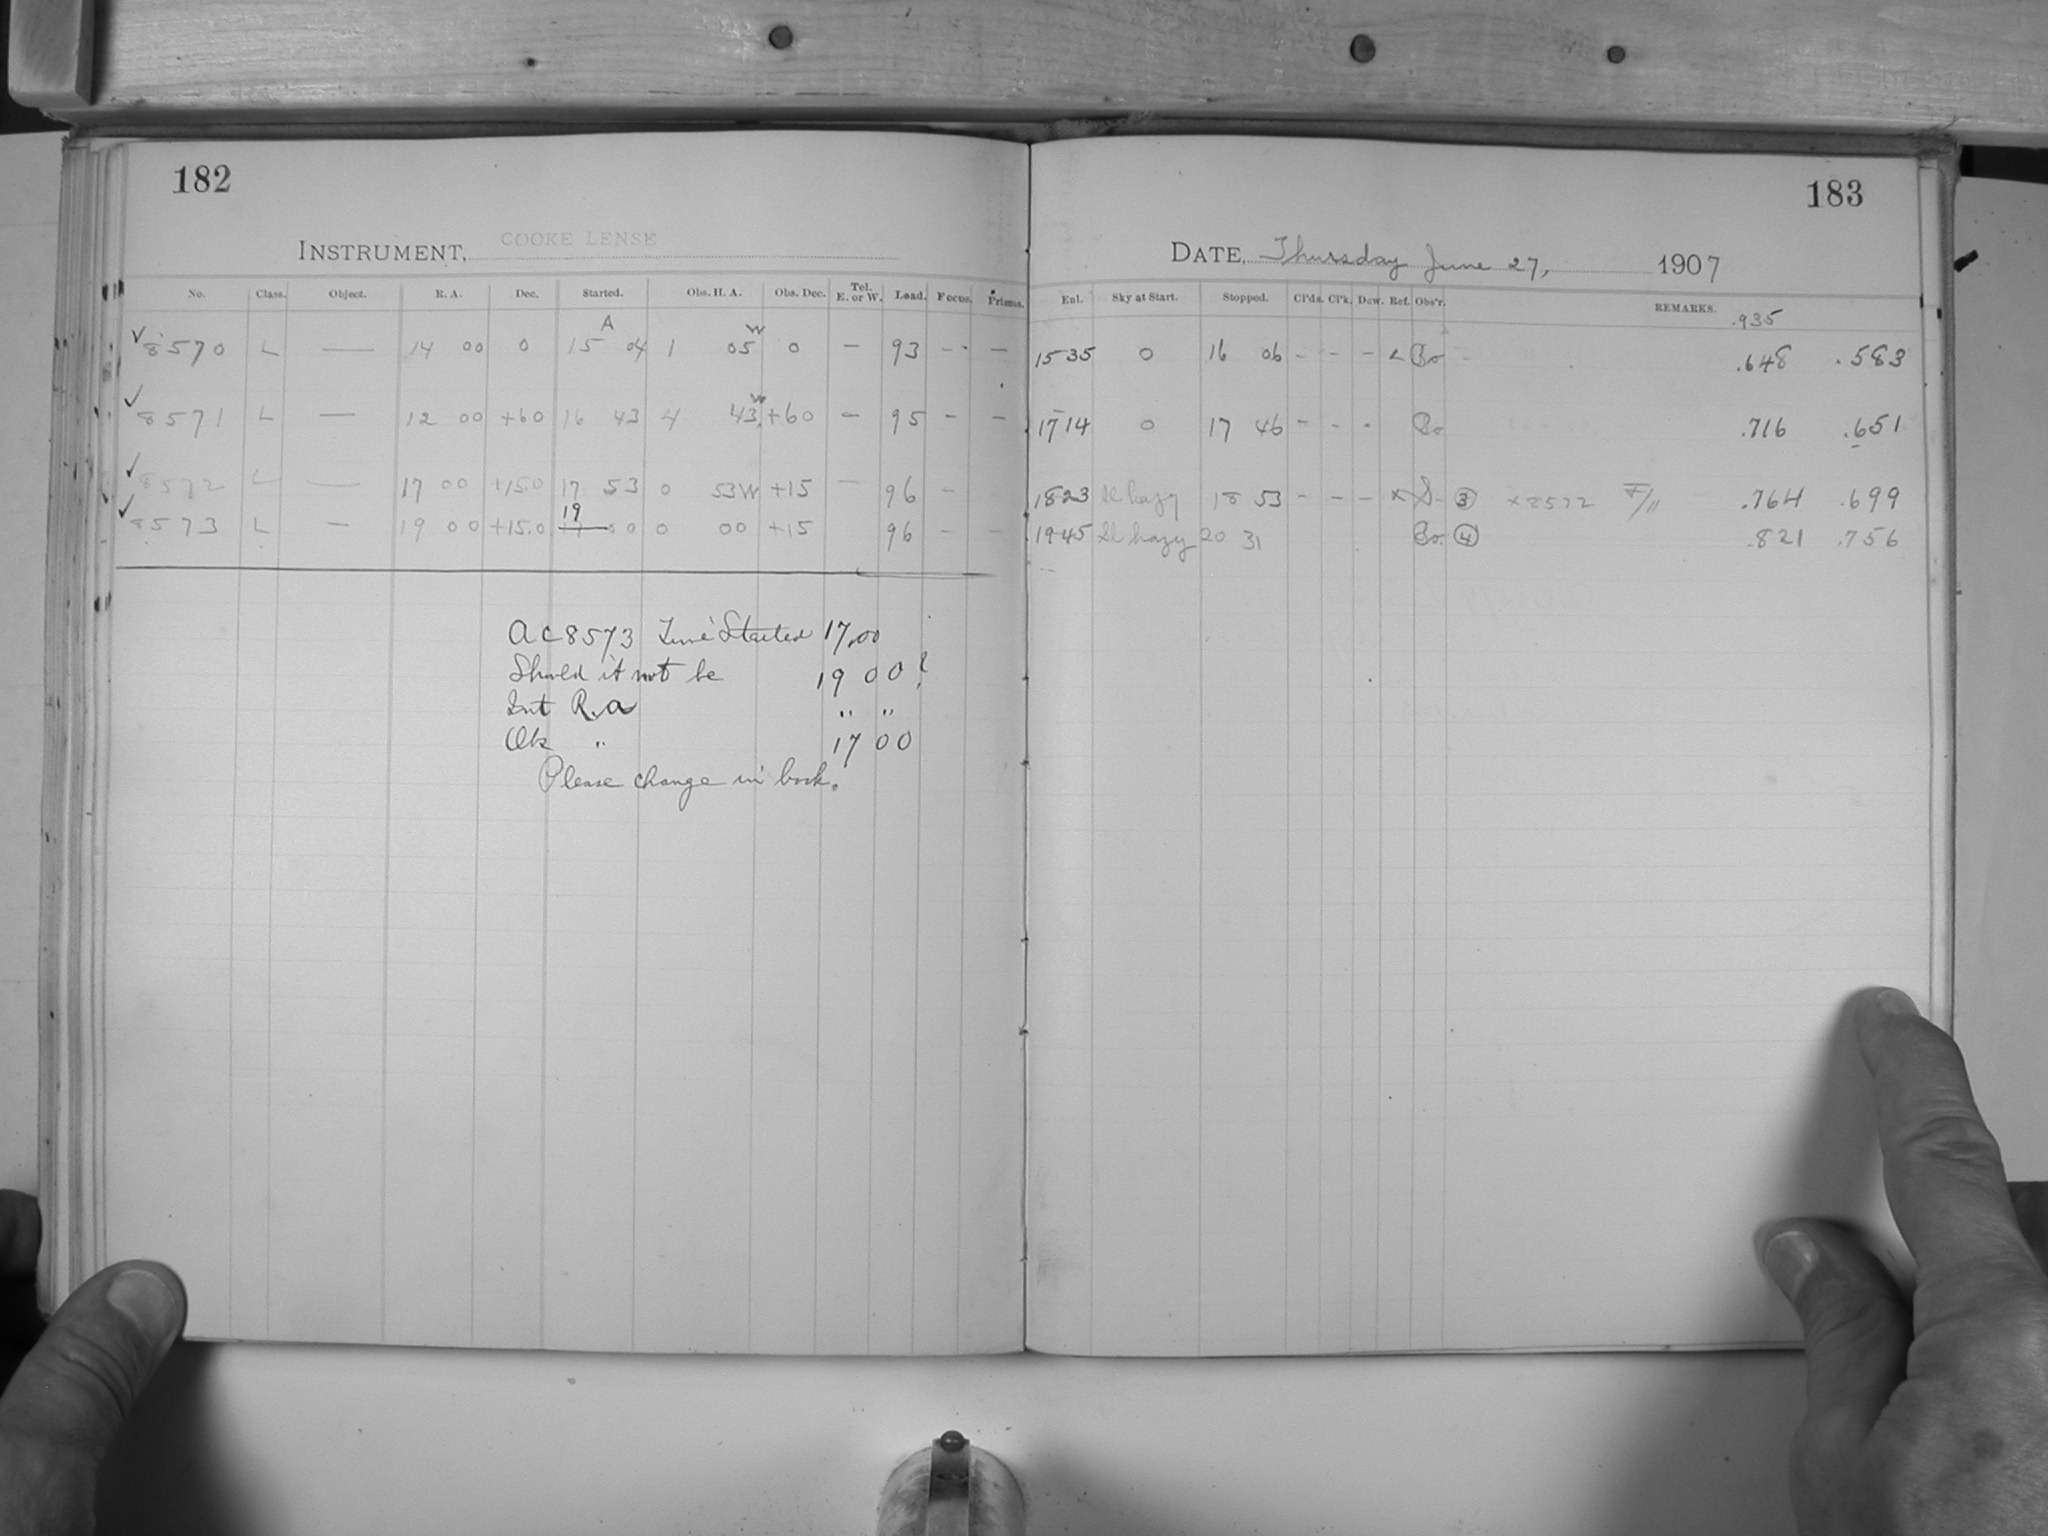 182
INSTRUMENT, COOKE LENSE
No. Class. Object. R. A. Dec. Started. Obs. H. A. Obs. Dec. Tel. E. or W. Load. Focus. Prisms.
A
✓ 8570 L — 14 00 0 15 04 1 05 W 0 — 93 - - —
✓ 8571 L — 12 00 +60 16 43 4 43 W +60 — 95 - —
✓ 8572 L — 17 00 +15.0 17 53 0 53W +15 — 96 -
19
✓ 8573 L — 19 00 +15.0 17 00 0 00 +15 96 - —
AC8573 Time Started 17.00
Should it not be 19 00?
Int R.a " "
Obs " 17 00
Please change in book.
183
DATE, Thursday June 27, 1907
Enl. Sky at Start. Stopped. Cl'ds. Cl'k. Dew. Ref. Obs'r. REMARKS.
.935
1535 0 16 06 - - - < Bo - .648 .583
1714 0 17 46 - - - Bo .716 .651
1823 Sl hazy 18 53 - - — × S- ③ ×8572 F/" .764 .699
1945 Sl hazy 20 31 Bo. ④ .821 .756